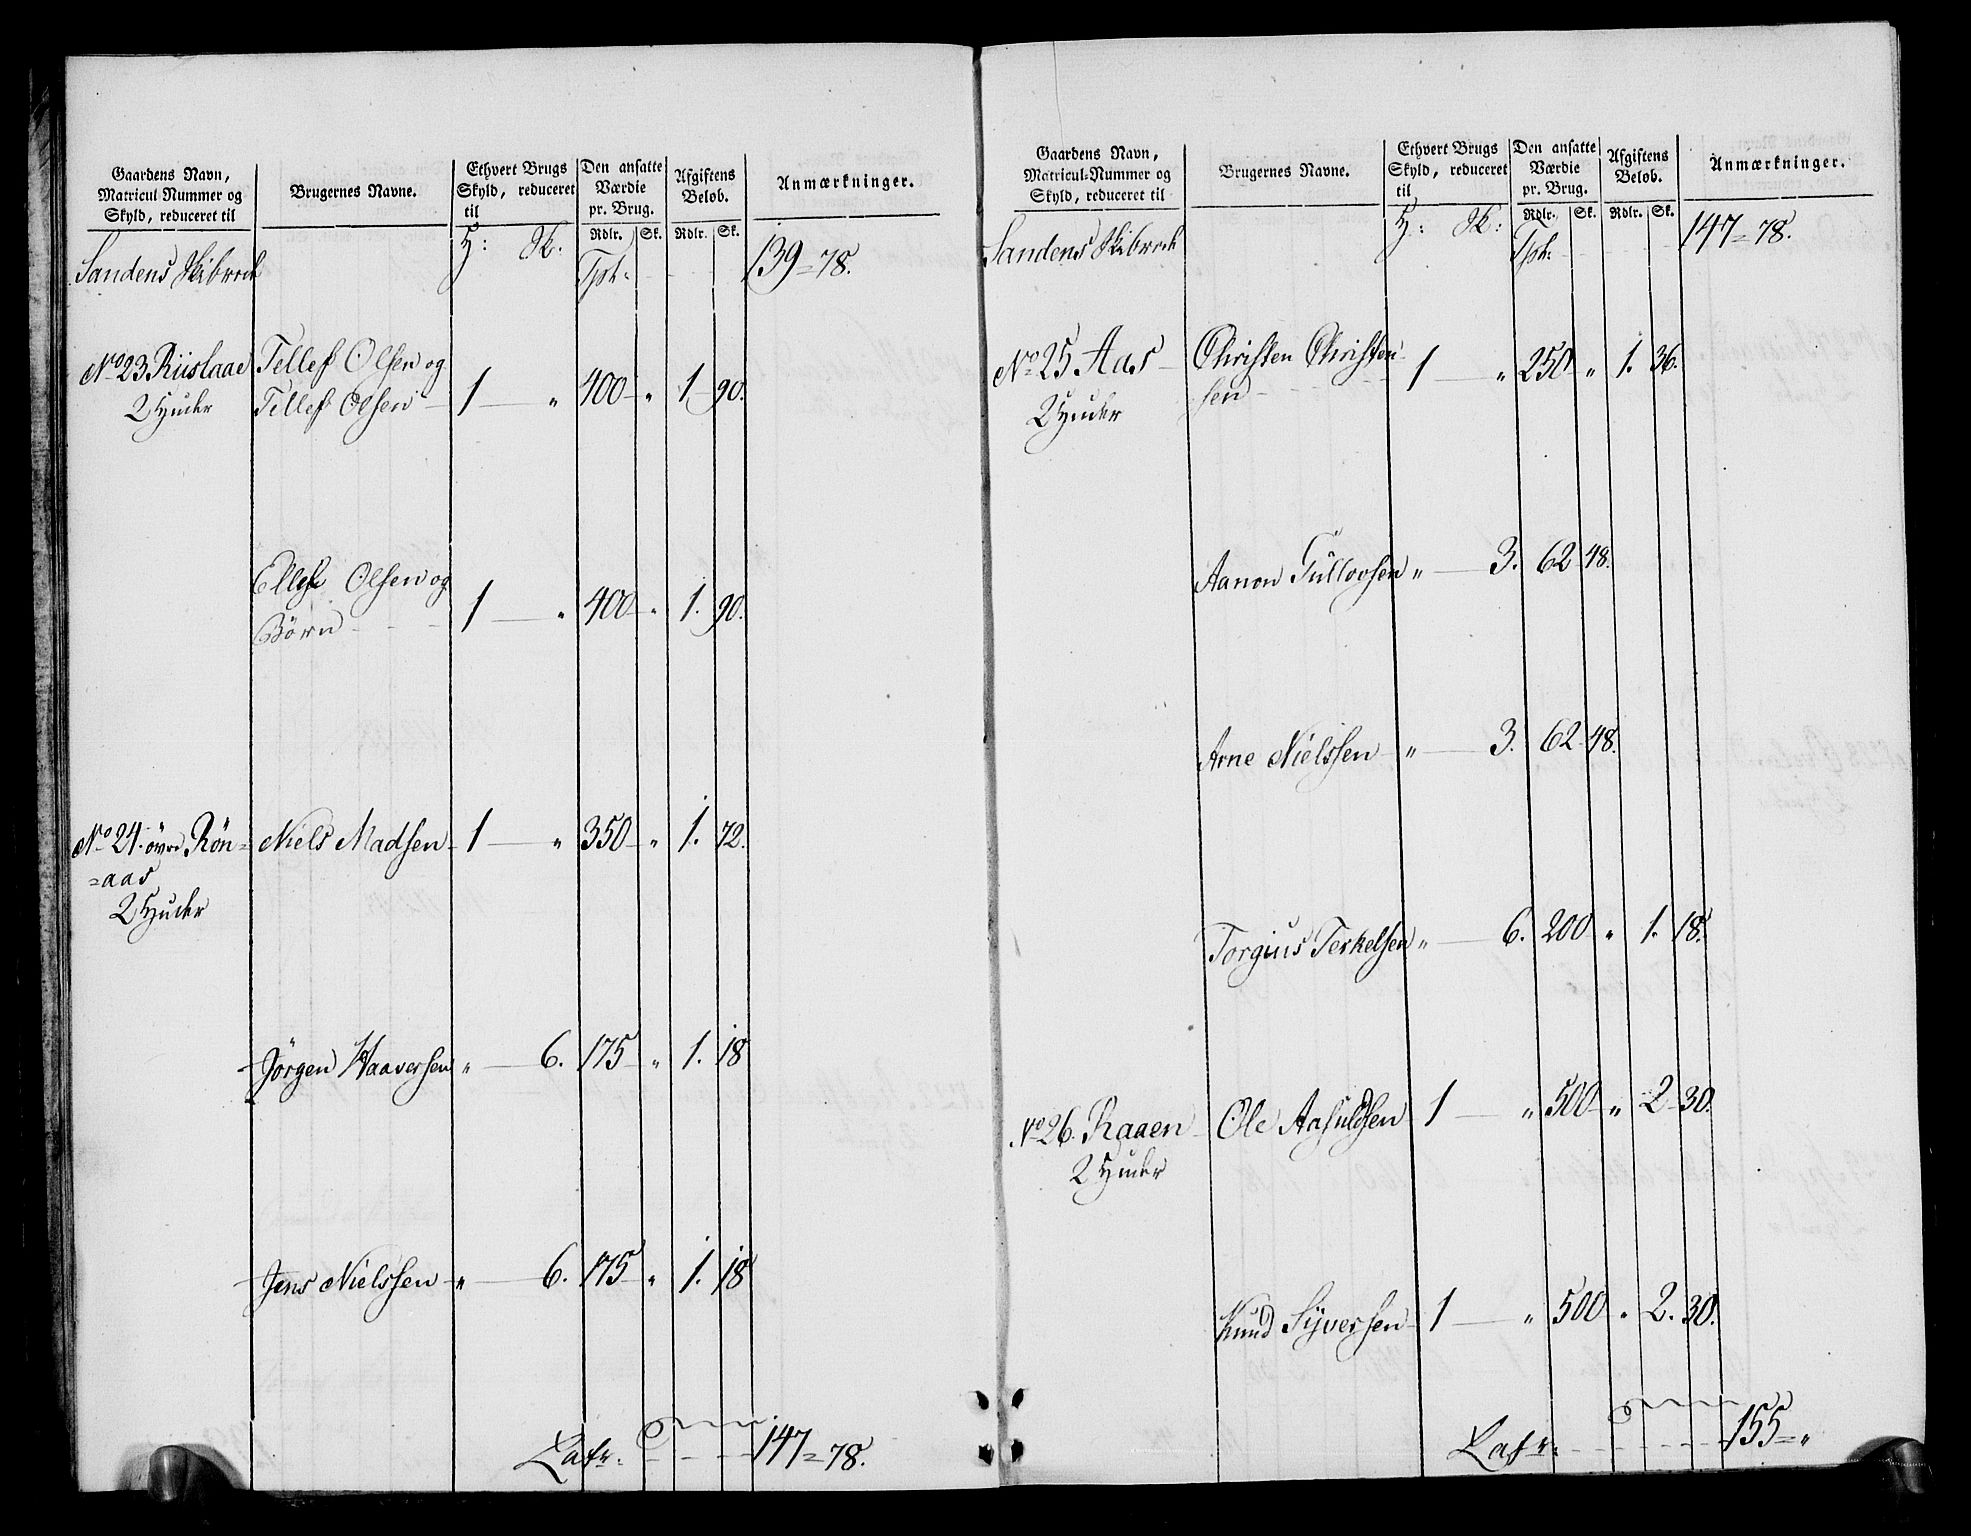 Gaardens Navn,
Matricul-Nummer og
Skyld, reduceret til
Brugernes Navne.
Ethvert Brugs
Skyld, reduceret
til
Den ansatte
Værdie
pr. Brug.
Rdlr. Sk.
Afgiftens
Beløb.
Rdlr. Sk.
Anmærkninger.
Sandens Skibrede H: Sk: Tpt. 139 = 78.
No 23 Riislaae Tellef Olsen og
2 Huder Tellef Olsen 1 — " 400 " 1. 90.
Ellef Olsen og
Børn 1 — " 400 " 1. 90.
No 24 övre Rön= Niels Madsen 1 — " 350 " 1. 72.
=aas
2 Huder
Jörgen Haaversen " — 6. 175 " 1. 18
Jens Nielssen " — 6. 175 " 1. 18
Latr. 147 = 78.
Gaardens Navn,
Matricul-Nummer og
Skyld, reduceret til
Brugernes Navne.
Ethvert Brugs
Skyld, reduceret
til
Den ansatte
Værdie
pr. Brug.
Rdlr. Sk.
Afgiftens
Beløb.
Rdlr. Sk.
Anmærkninger.
Sandens Skibrede H: Sk: Tpt. 147 = 78.
No 25 Aas Christen Christen-
2 Huder sen 1 — " 250 " 1. 36.
Aanon Tullovsen " — 3. 62 48.
Arne Nielssen " — 3. 62 48.
Torgius Terkelsen " — 6. 200 " 1. 18.
No 26. Raaen Ole Aasuldsen 1 — " 500 " 2 30.
2 Huder
Knud Syversen 1 — " 500 " 2. 30.
Latr. 155 = "